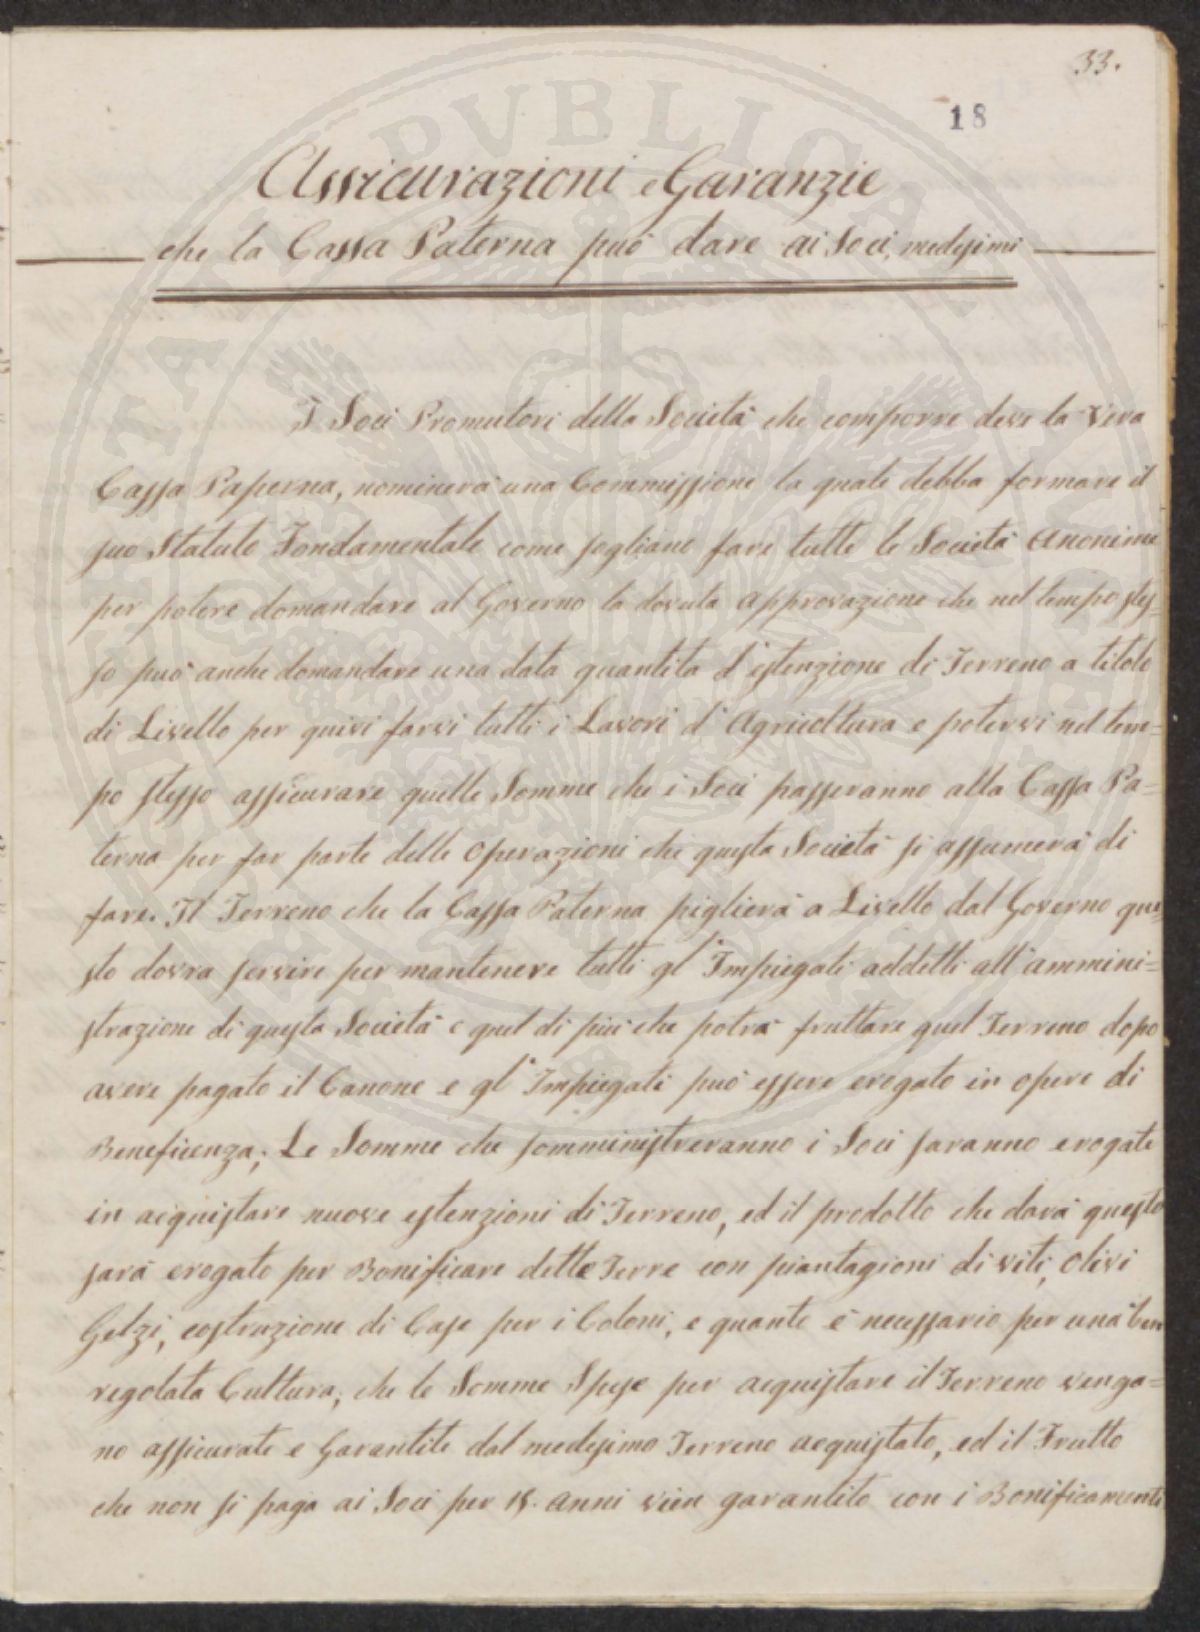 33.
18
Assicurazioni e Garanzie
che la Cassa Paterna può dare ai Soci, medesimi
I Soci Promutori della Società che comporre deve la Vera
Cassa Paperna, nominerà una Commissione la quale debba formare il
suo Statuto Fondamentale come sogliano fare tutte le Società Anonime
per potere domandare al Governo la dovuta approvazione che nel tempo stes=
so può anche domandare una data quantita d'estenzione di Terreno a titolo
di Livello per quivi farvi tutti i Lavori d'Agricoltura e potervi nel tem=
po stesso assicurare quelle Somme che i Soci passeranno alla Cassa Pa=
terna per far parte delle Operazioni che questa Società si assumerà di
fare. Il Terreno che la Cassa Paterna piglierà a Livello dal Governo que=
sto dovra servire per mantenere tutti gl'Impiegati addetti all'ammini=
strazione di questa Società e quel di più che potrà fruttare quel Terreno dopo
avere pagato il Canone e gl'Impiegati può essere erogato in opere di
Beneficenza; Le Somme che somministreranno i Soci saranno erogate
in acquistare nuove estenzioni di Terreno, ed il prodotto che darà questo
sarà erogato per Bonificare dette Terre con piantagioni di viti, Olivi
Gelzi, costruzione di Case per i Coloni, e quanto è necessario per una ben
regolata Cultura; che le Somme Spese per acquistare il Terreno venga=
no assicurate e Garantite dal medesimo Terreno acquistato, ed il Frutto
che non si paga ai Soci per 15. anni vien garantito con i Bonificamenti